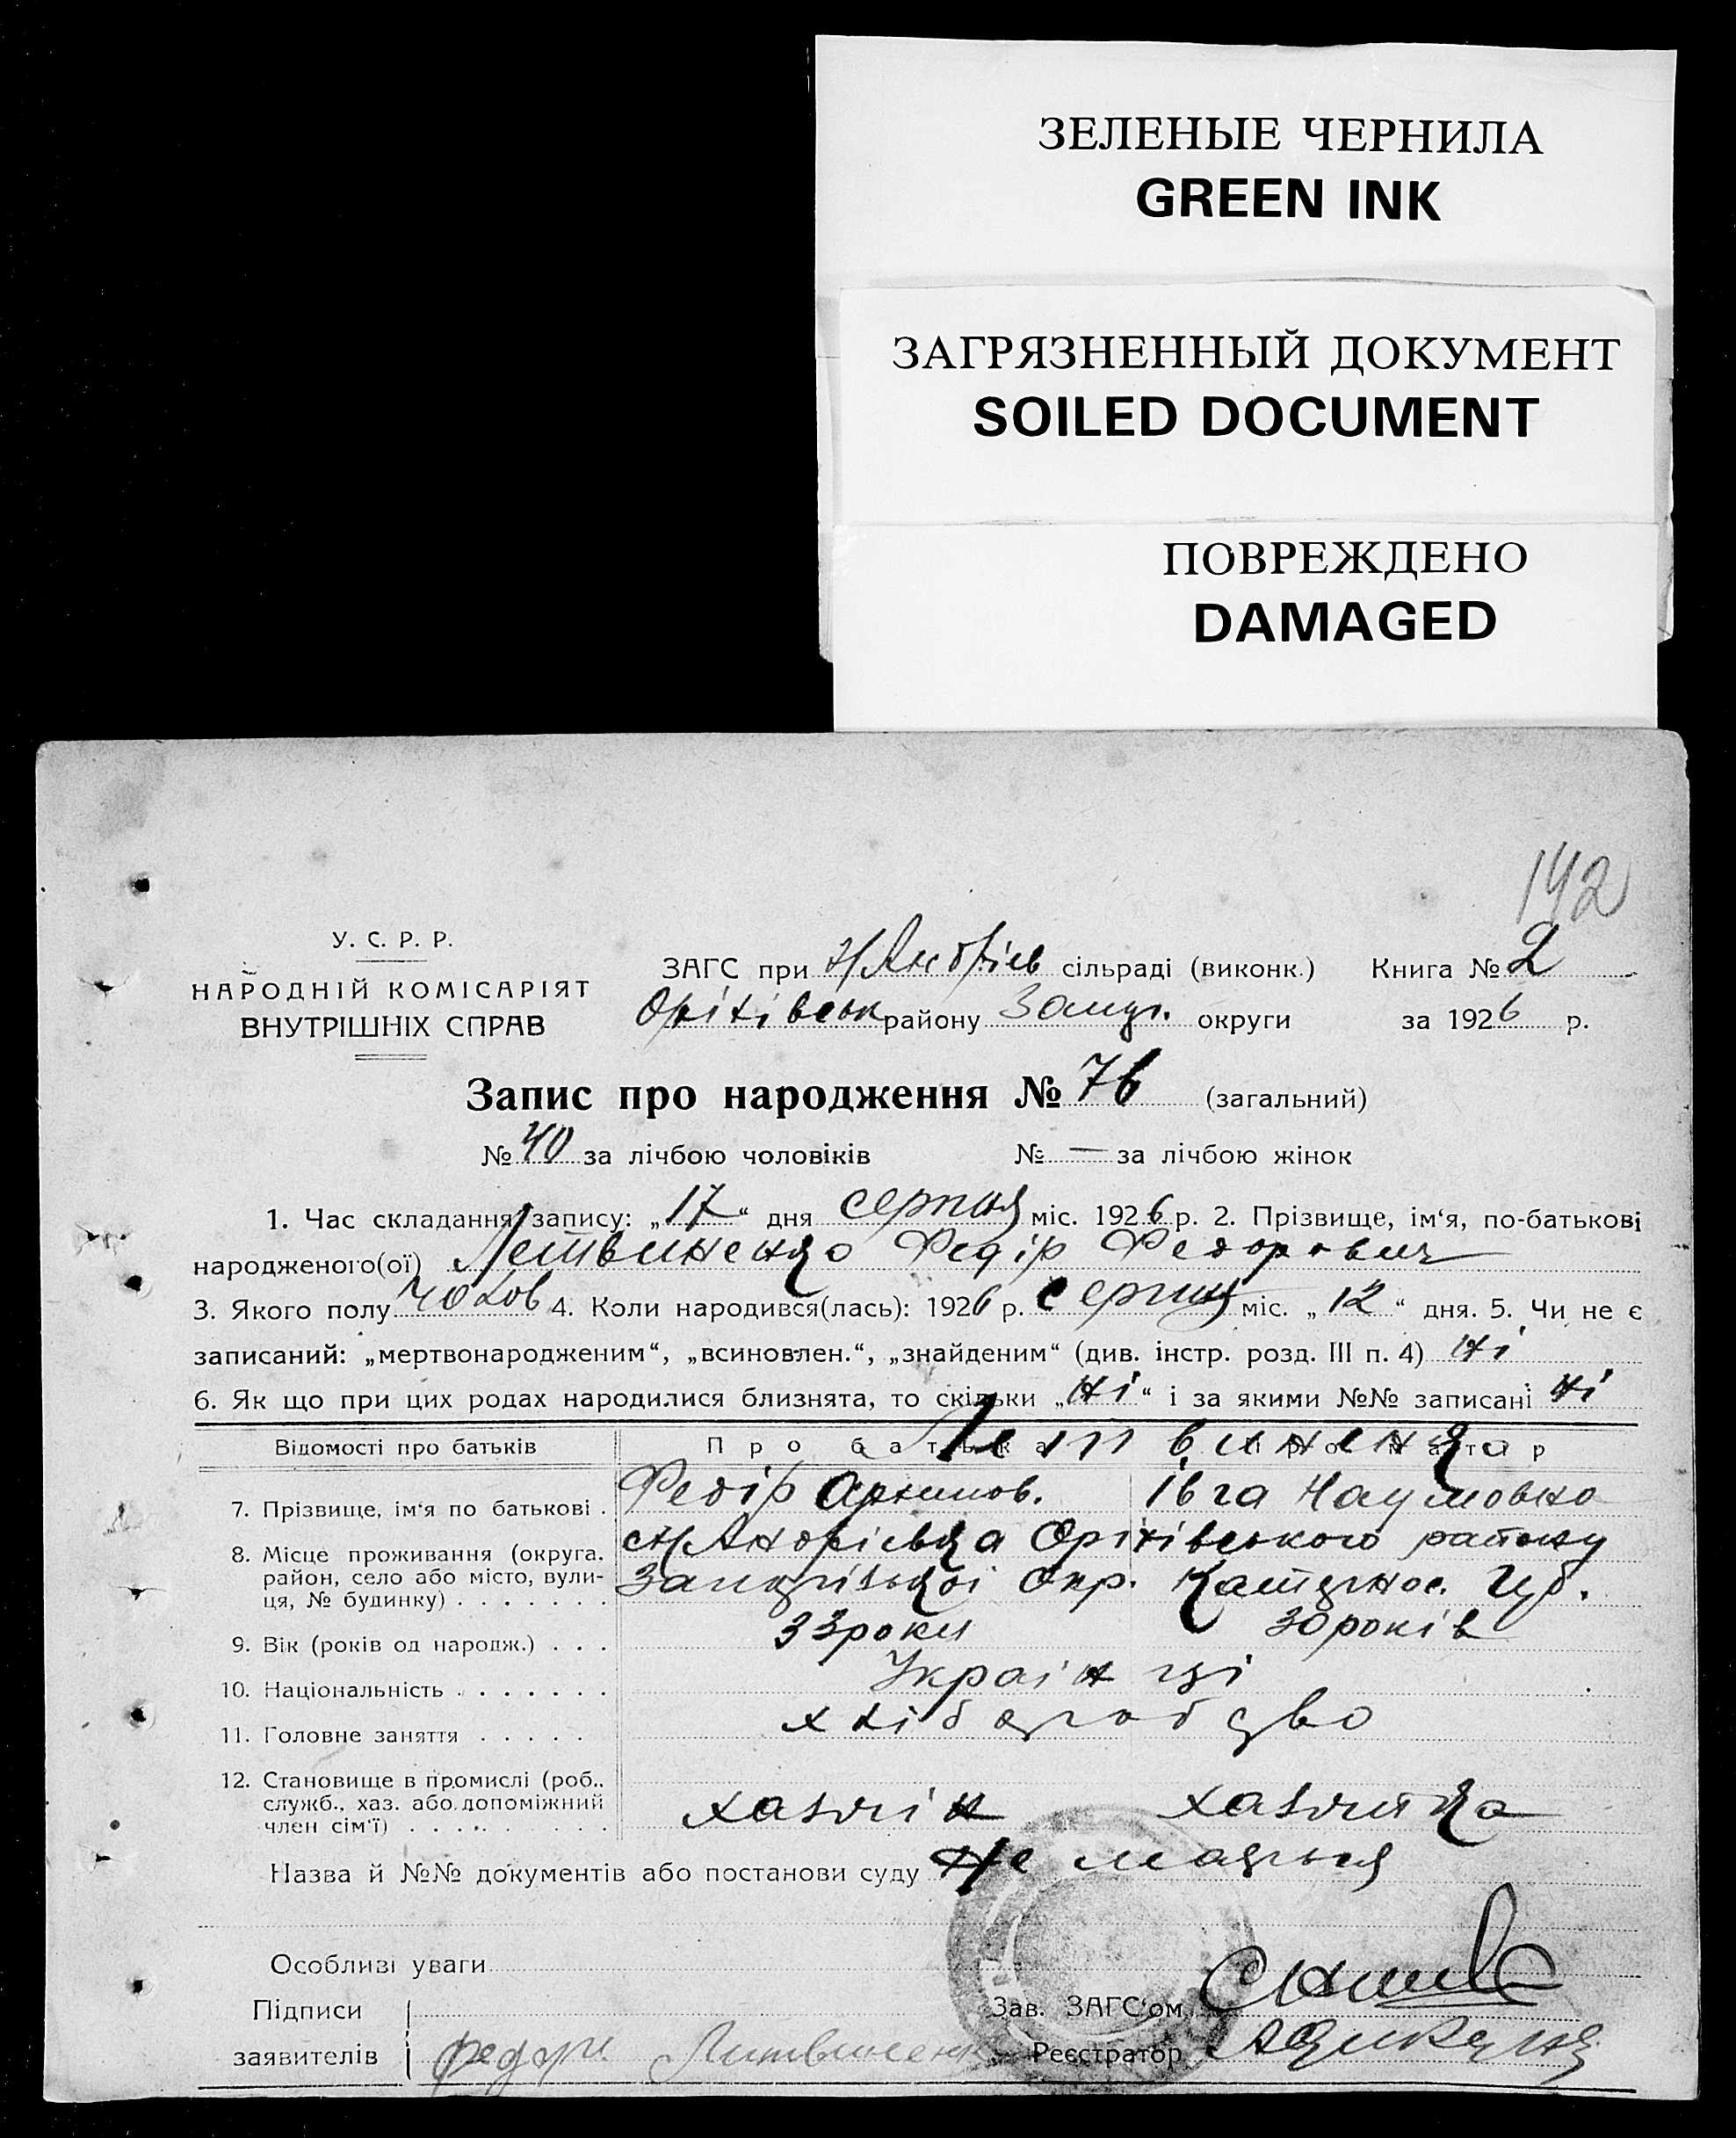 ЗЕЛЕНЫЕ ЧЕРНИЛА
GREEN INK
ЗАГРЯЗНЕННЫЙ ДОКУМЕНТ
SOILED DOCUMENT
ПОВРЕЖДЕНО
DAMAGED
142
У. С. Р. Р.
НАРОДНІЙ КОМІСАРІЯТ
ВНУТРІШНІХ СПРАВ
ЗАГС при Н/Андрієв сільраді (виконк.) Книга № 2
Оріхівськ району Запор. округи за 1926 р.
Запис про народження № 76 (загальний)
№ 40 за лічбою чоловіків № — за лічбою жінок
1. Час складання запису: „17“ дня серпня міс. 1926 р. 2. Прізвище, ім‘я, по-батькові
народженого(ої) Летвиненко Федір Федорович
3. Якого полу чолов 4. Коли народився(лась): 1926 р. серпня міс. „12“ дня. 5. Чи не є
записаний: „мертвонародженим“, „всиновлен.“, „знайденим“ (див. інстр. розд. III п. 4) ні
6. Як що при цих родах народилися близнята, то скільки „ні“ і за якими №№ записані ні
Відомості про батьків Про батька Про матір
Летвиненко
7. Прізвище, ім‘я по батькові . Федір Архипов. Івга Наумовна
8. Місце проживання (округа, район, село або місто, вулиця, № будинку) . . . . . . . Н/Андрієвка Оріхівського району
Запорізької Окр. Катернос. Губ.
9. Вік (років од народж.) . . . 33 роки 30 років
10. Національність . . . . . . . Українці
11. Головне заняття . . . . . хліборобство
12. Становище в промислі (роб.,
служб., хаз. або допоміжний
член сім‘ї) . . . . . . . . хазяїн хазяйка
Назва й №№ документів або постанови суду Не мається
Особливі уваги
Підписи Зав. ЗАГС‘ом
заявителів Федір Литвиненко Реєстратор